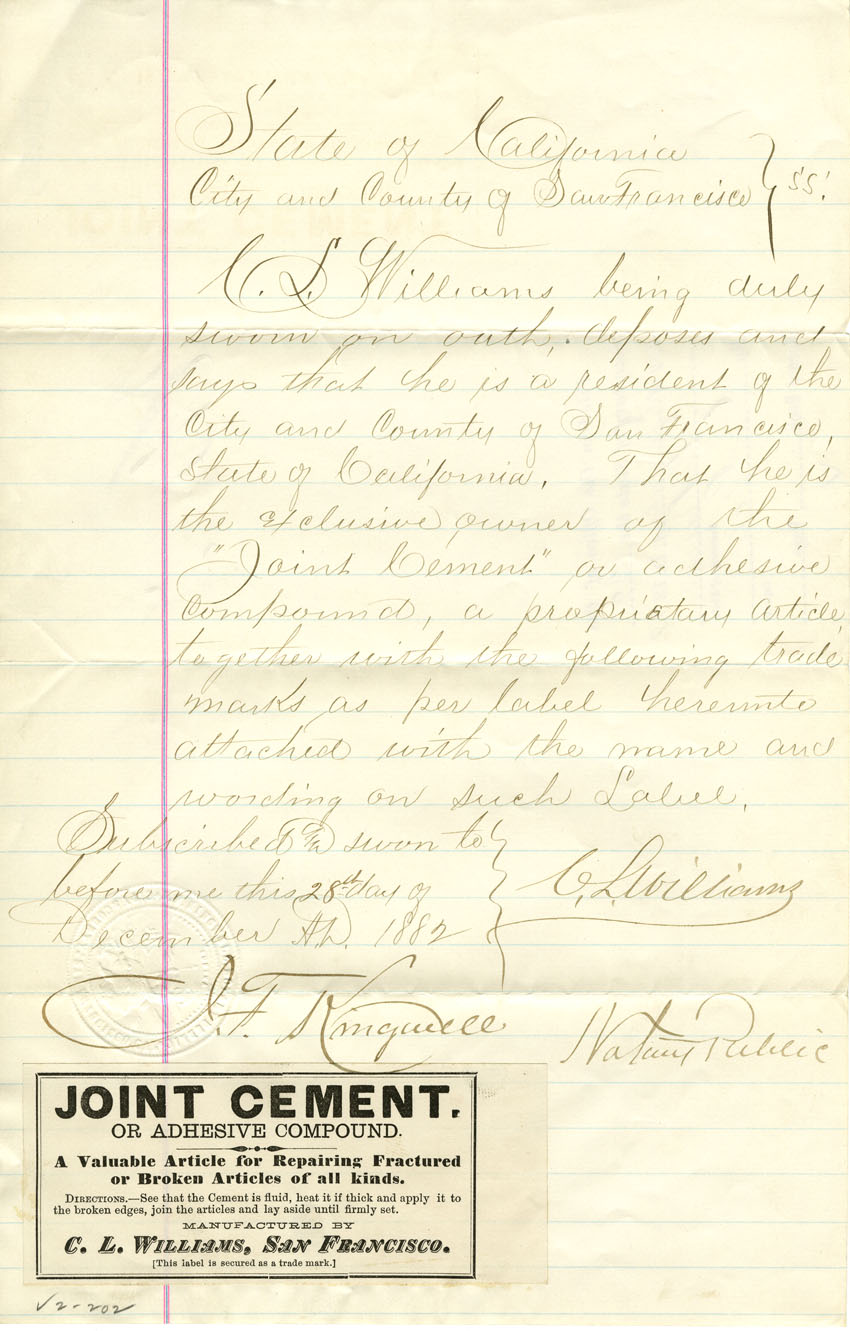 State of California
City and County of San Francisco } ss.
C. L. Williams being duly
sworn on oath, deposes and
says that he is a resident of the
City and County of San Francisco,
State of California. That he is
the exclusive owner of the
"Joint Cement" or adhesive
compound, a propriatary article,
together with the following trade
marks as per label hereunto
attached with the name and
wording on such Label.
Subscribed & sworn to
before me this 28th day of
December A.D. 1882
C. L. Williams
J. F. Kingwell
Notary Public
JOINT CEMENT,
OR ADHESIVE COMPOUND.
A Valuable Article for Repairing Fractured
or Broken Articles of all kinds.
DIRECTIONS.—See that the Cement is fluid, heat it if thick and apply it to
the broken edges, join the articles and lay aside until firmly set.
MANUFACTURED BY
C. L. WILLIAMS, SAN FRANCISCO.
[This label is secured as a trade mark.]
√2-202